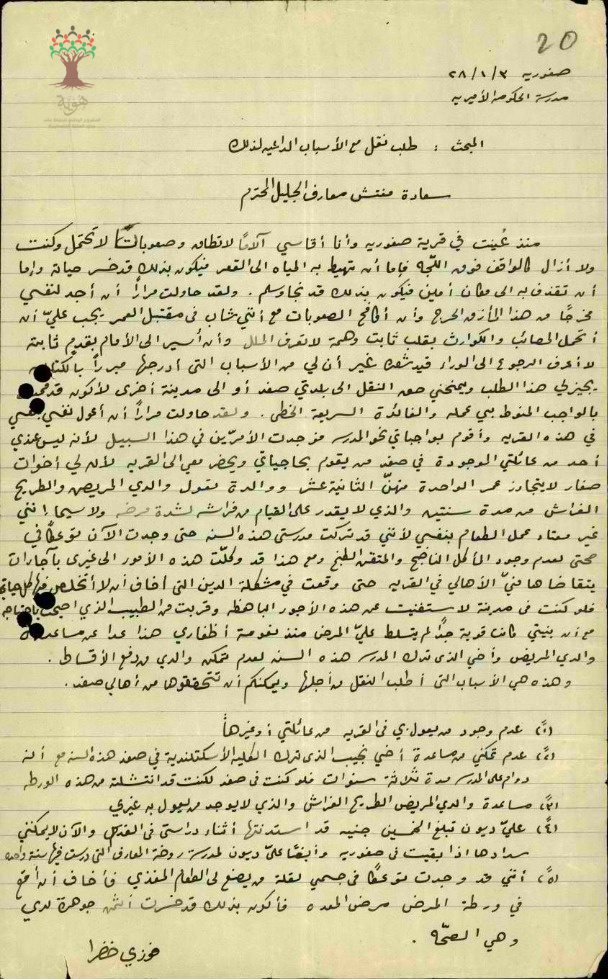 20
صفوريه ٣/١/٢٨
مدرسة الحكومة الأميريه
المبحث : طلب نقل مع الأسباب الداعيه لذلك
سعادة مفتش معارف الجليل المحترم
منذ عُينت في قرية صفوريه وأنا أقاسي آلامًا لا تطاق وصعوبات لا تحتمل وكنت
ولا أزال كالواقف فوق اللجّة فإما أن تهبط به المياه الى القعر فيكون بذلك قد خسر حياته وإما
أن تقذف به الى مكان أمين فيكون بذلك قد نجا وسلم . ولقد حاولت مرارًا أن أجد لنفسي
مخرجًا من هذا المأزق الحرج وأن أكافح الصعوبات مع أنني شاب في مقتبل العمر يجب عليّ أن
أتحمل المصائب والكوارث بقلب ثابت وهمة لا تعرف الملل وأن أسير الى الأمام بقدم ثابتة
لا أعرف الرجوع الى الوراء قيد شعره غير أن لي من الأسباب التي أدرجها مبررًا
يجيز لي هذا الطلب ويمنحني حق النقل الى بلدتي صفد أو الى مدينة أخرى لأكون قد
بالواجب المنوط بي عمله والفائدة السريعة الخطى . ولقد حاولت مرارًا أن أعول نفسي
في هذه القريه وأقوم بواجباتي نحو المدرسه فوجدت الأمرّين في هذا السبيل لأنه ليس عندي
أحد من عائلتي الموجودة في صفد من يقوم بحاجياتي ويحضر معي الى القريه لأنه لي أخوات
صغار لا يتجاوز عمر الواحدة منهنّ الثانية عشر ووالدة تعول والدي المريض والطريح
الفراش من مدة سنتين والذي لا يقدر على القيام من فراشه لشدة مرضه ولا سيما انني
غير معتاد عمل الطعام بنفسي لأنني قد تركت مدرستي هذه السنه حتى وجدت الآن توعكًا في
صحتي لعدم وجود المأكل الناضج والمتقن الطبخ ومع هذا قد وكلت هذه الأمور الى غيري بآجارات
يتقاضاها منيّ الأهالي في القريه حتى وقعت في مشكلة الدين التي أخاف أن لا أتخلص من
فلو كنت في مدينة لاستغنيت عن هذه الأجور الباهظه وقربت من الطبيب الذي
مع أن بنيتي كانت قوية جدًا لم يتسلط عليّ المرض منذ نعومة أظفاري هذا عدا عن مساعدة
والدي المريض وأخي الذي ترك المدرسه هذه السنه لعدم تمكن والدي من دفع الأقساط .
وهذه هي الأسباب التي أطلب النقل من أجلها ويمكنكم أن تتحققوها من أهالي صفد .
(١) عدم وجود من يعول بي في القريه من عائلتي أو غيرها
(٢) عدم تمكني من مساعدة أخي نجيب الذي ترك الكليه الأسكتلنديه في صفد هذه السنه مع أنه
دوام على المدرسه مدة ثلاثة سنوات فلو كنت في صفد لكنت قد انتشلته من هذه الورطه
(٣) مساعدة والدي المريض الطريح الفراش والذي لا يوجد من يعول به غيري
(٤) عليّ ديون تبلغ الخمسين جنيه قد استدنتها أثناء دراستي في القدس والآن لا يمكنني
سدادها اذا بقيت في صفوريه وأيضًا عليّ ديون لمدرسة روضة المعارف التي درست فيها سنة واحده
(٥) أنني قد وجدت توعكًا في جسمي لقلة من يصنع لي الطعام المغذي فأخاف أن أقع
في ورطة المرض مرض المعده فأكون بذلك قد خسرت أثمن جوهرة لدي
وهي الصحّه .
فوزي خضرا
هوية